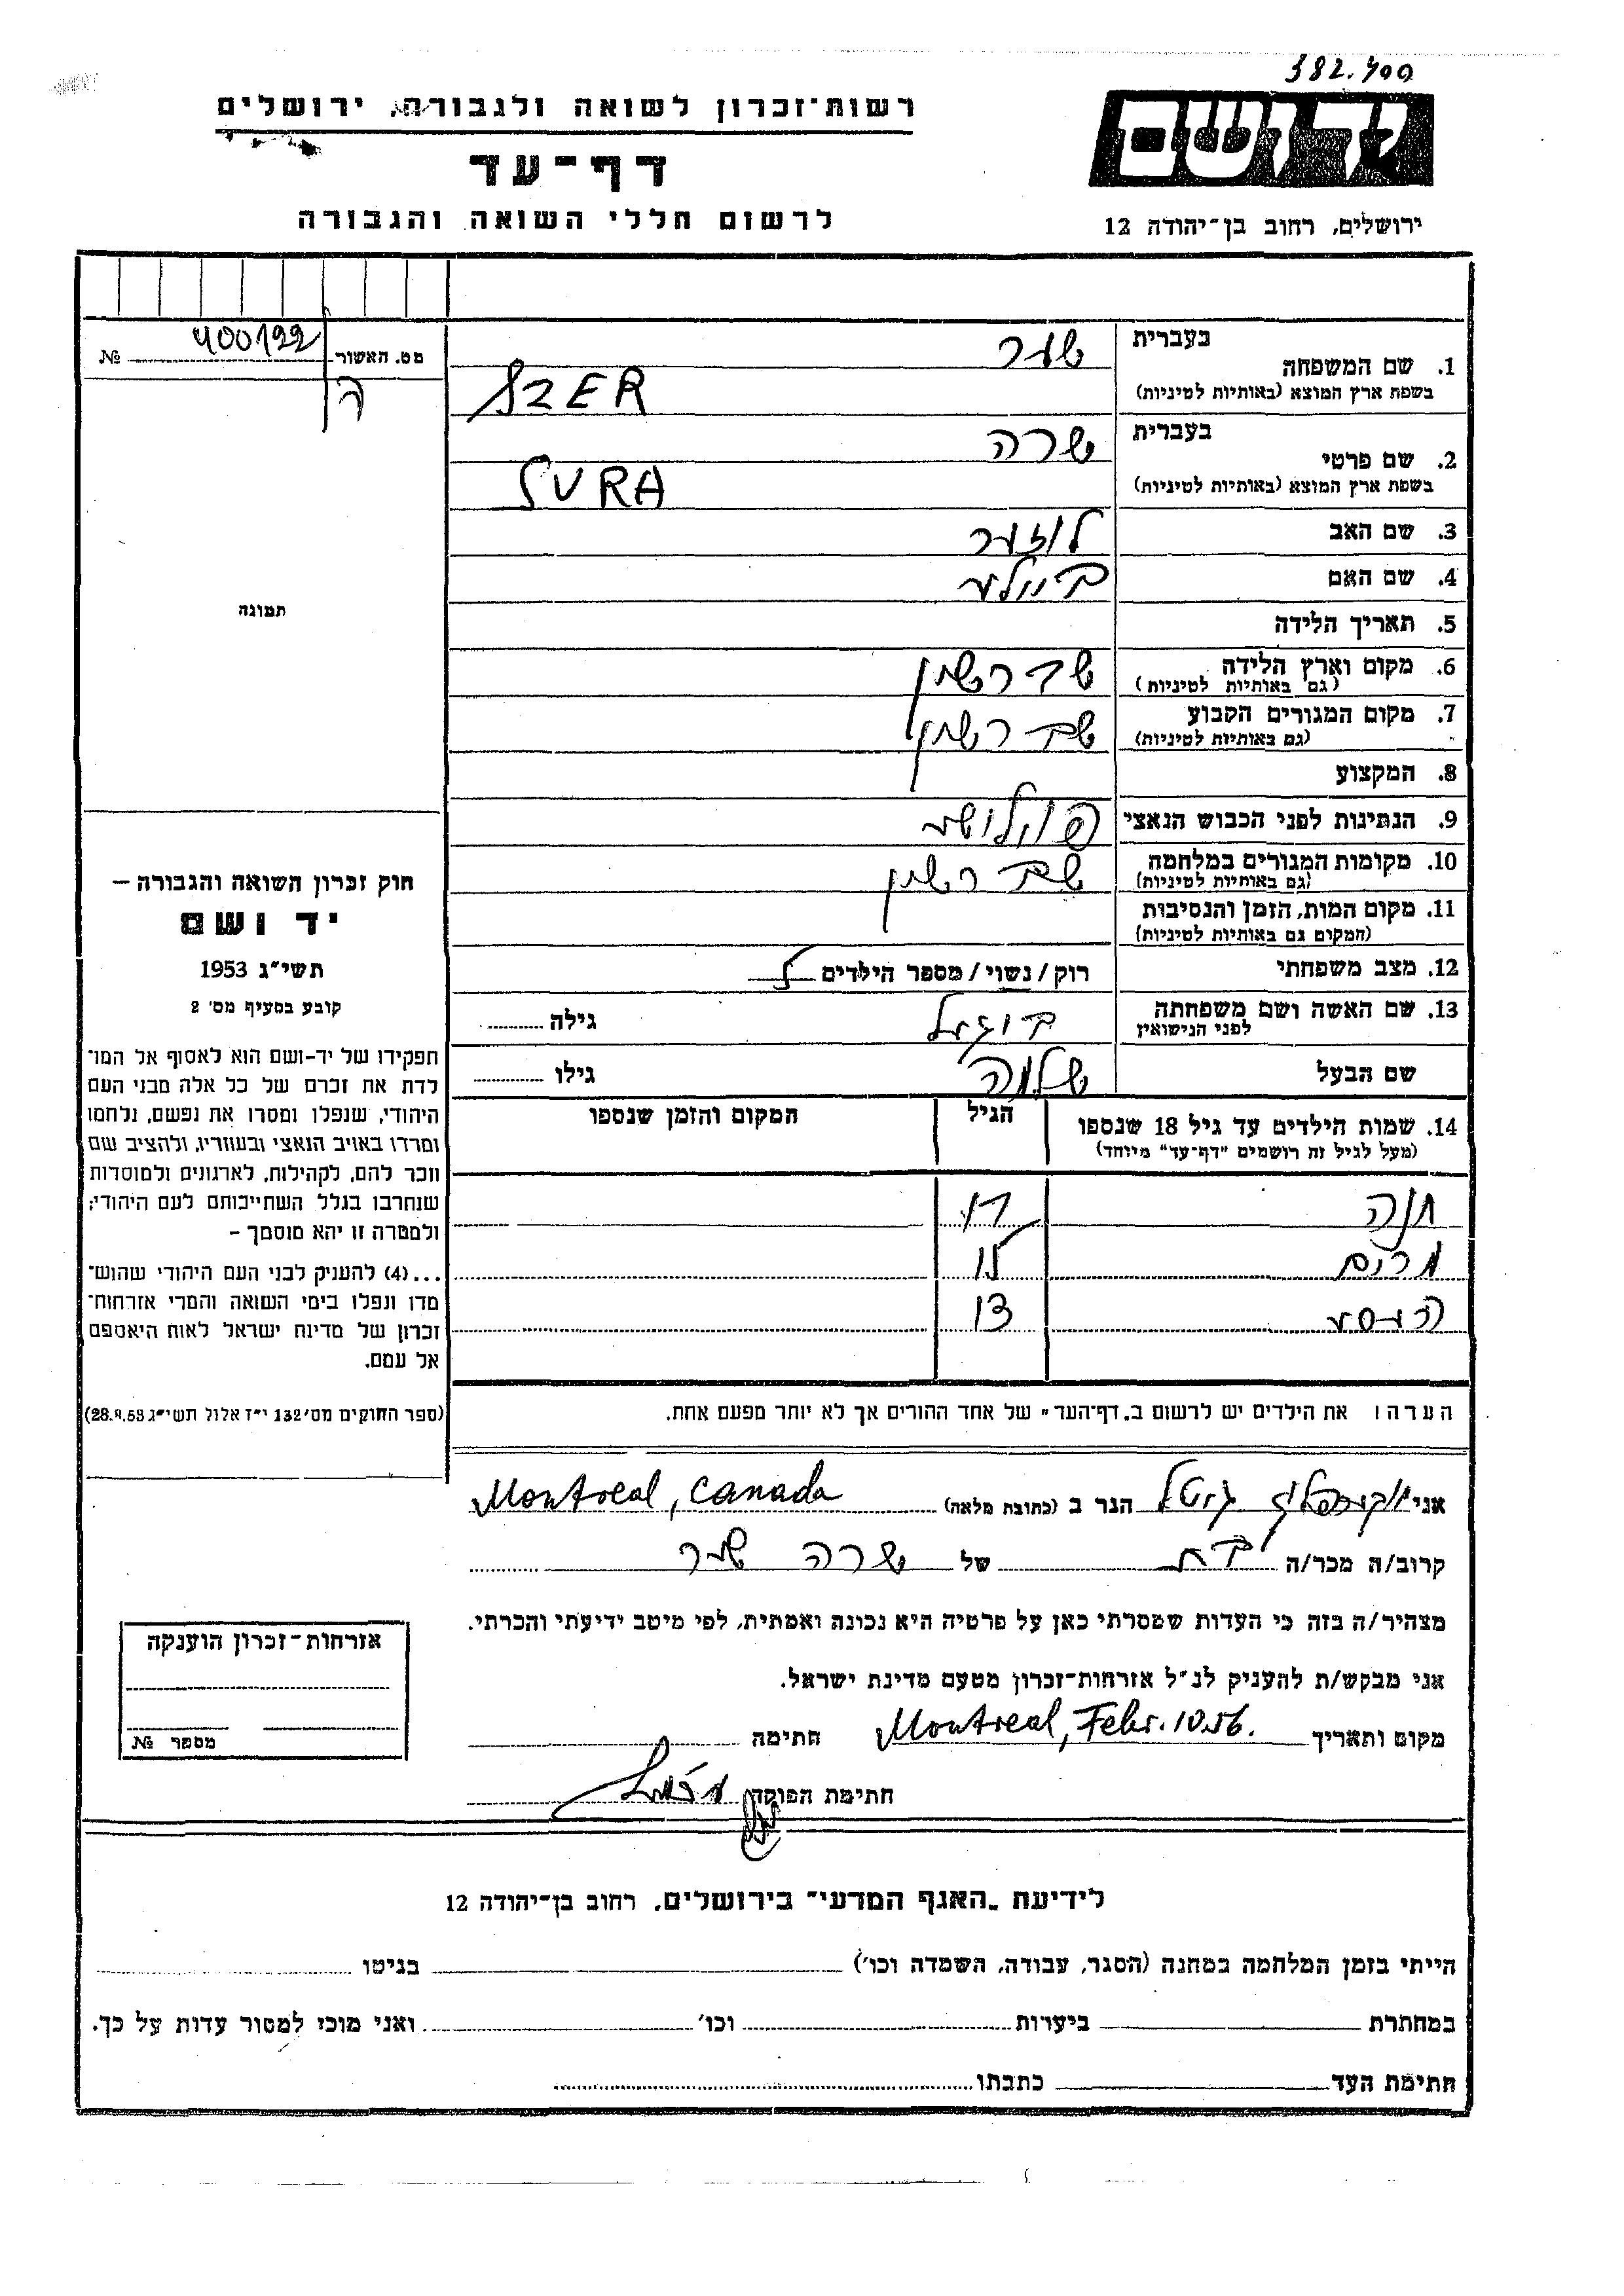 382.400
ידושם
רשות־זכרון לשואה ולגבורה, ירושלים
דף־עד
לרשום חללי השואה והגבורה
ירושלים, רחוב בן־יהודה 12
מס. האשור № 400122
ה
1. שם המשפחה
בעברית שער
בשפת ארץ המוצא (באותיות לטיניות) SZER
2. שם פרטי
בעברית שרה
בשפת ארץ המוצא (באותיות לטיניות) SURA
3. שם האב לוזער
4. שם האם ביילע
5. תאריך הלידה
6. מקום וארץ הלידה
(גם באותיות לטיניות)
7. מקום המגורים הקבוע
(גם באותיות לטיניות)
8. המקצוע
9. הנתינות לפני הכבוש הנאצי פוילושע
10. מקומות המגורים במלחמה
(גם באותיות לטיניות)
11. מקום המות, הזמן והנסיבות
(המקום גם באותיות לטיניות)
12. מצב משפחתי רוק / נשוי / מספר הילדים 5
13. שם האשה ושם משפחתה
לפני הנישואין גילה
שם הבעל שלמה גילו
14. שמות הילדים עד גיל 18 שנספו
(מעל לגיל זה רושמים "דף־עד" מיוחד)
הגיל
המקום והזמן שנספו
חנה 17
מרים 15
הדסה 13
הערה: את הילדים יש לרשום ב„דף־העד" של אחד ההורים אך לא יותר מפעם אחת.
תמונה
חוק זכרון השואה והגבורה –
יד ושם
תשי"ג 1953
קובע בסעיף מס' 2
תפקידו של יד-ושם הוא לאסוף אל המו־
לדת את זכרם של כל אלה מבני העם
היהודי, שנפלו ומסרו את נפשם, נלחמו
ומרדו באויב הנאצי ובעוזריו, ולהציב שם
וזכר להם, לקהילות, לארגונים ולמוסדות
שנחרבו בגלל השתייכותם לעם היהודי;
ולמטרה זו יהא מוסמך –
...(4) להעניק לבני העם היהודי שהוש־
מדו ונפלו בימי השואה והמרי אזרחות־
זכרון של מדינת ישראל לאות היאספם
אל עמם.
(ספר החוקים מס' 132 י"ז אלול תשי"ג 28.8.53)
אני גיטל הגר ב (כתובת מלאה) Montreal, Canada
קרוב/ה מכר/ה בת של שרה שער
מצהיר/ה בזה כי העדות שמסרתי כאן על פרטיה היא נכונה ואמתית, לפי מיטב ידיעתי והכרתי.
אני מבקש/ת להעניק לנ"ל אזרחות־זכרון מטעם מדינת ישראל.
מקום ותאריך Montreal, Febr. 10.56. חתימה
חתימת הפוקד
אזרחות־זכרון הוענקה
מספר №
לידיעת „האגף המדעי" בירושלים, רחוב בן־יהודה 12
הייתי בזמן המלחמה במחנה (הסגר, עבודה, השמדה וכו') בגיטו
במחתרת ביערות וכו' ואני מוכן למסור עדות על כך.
חתימת העד כתבתו